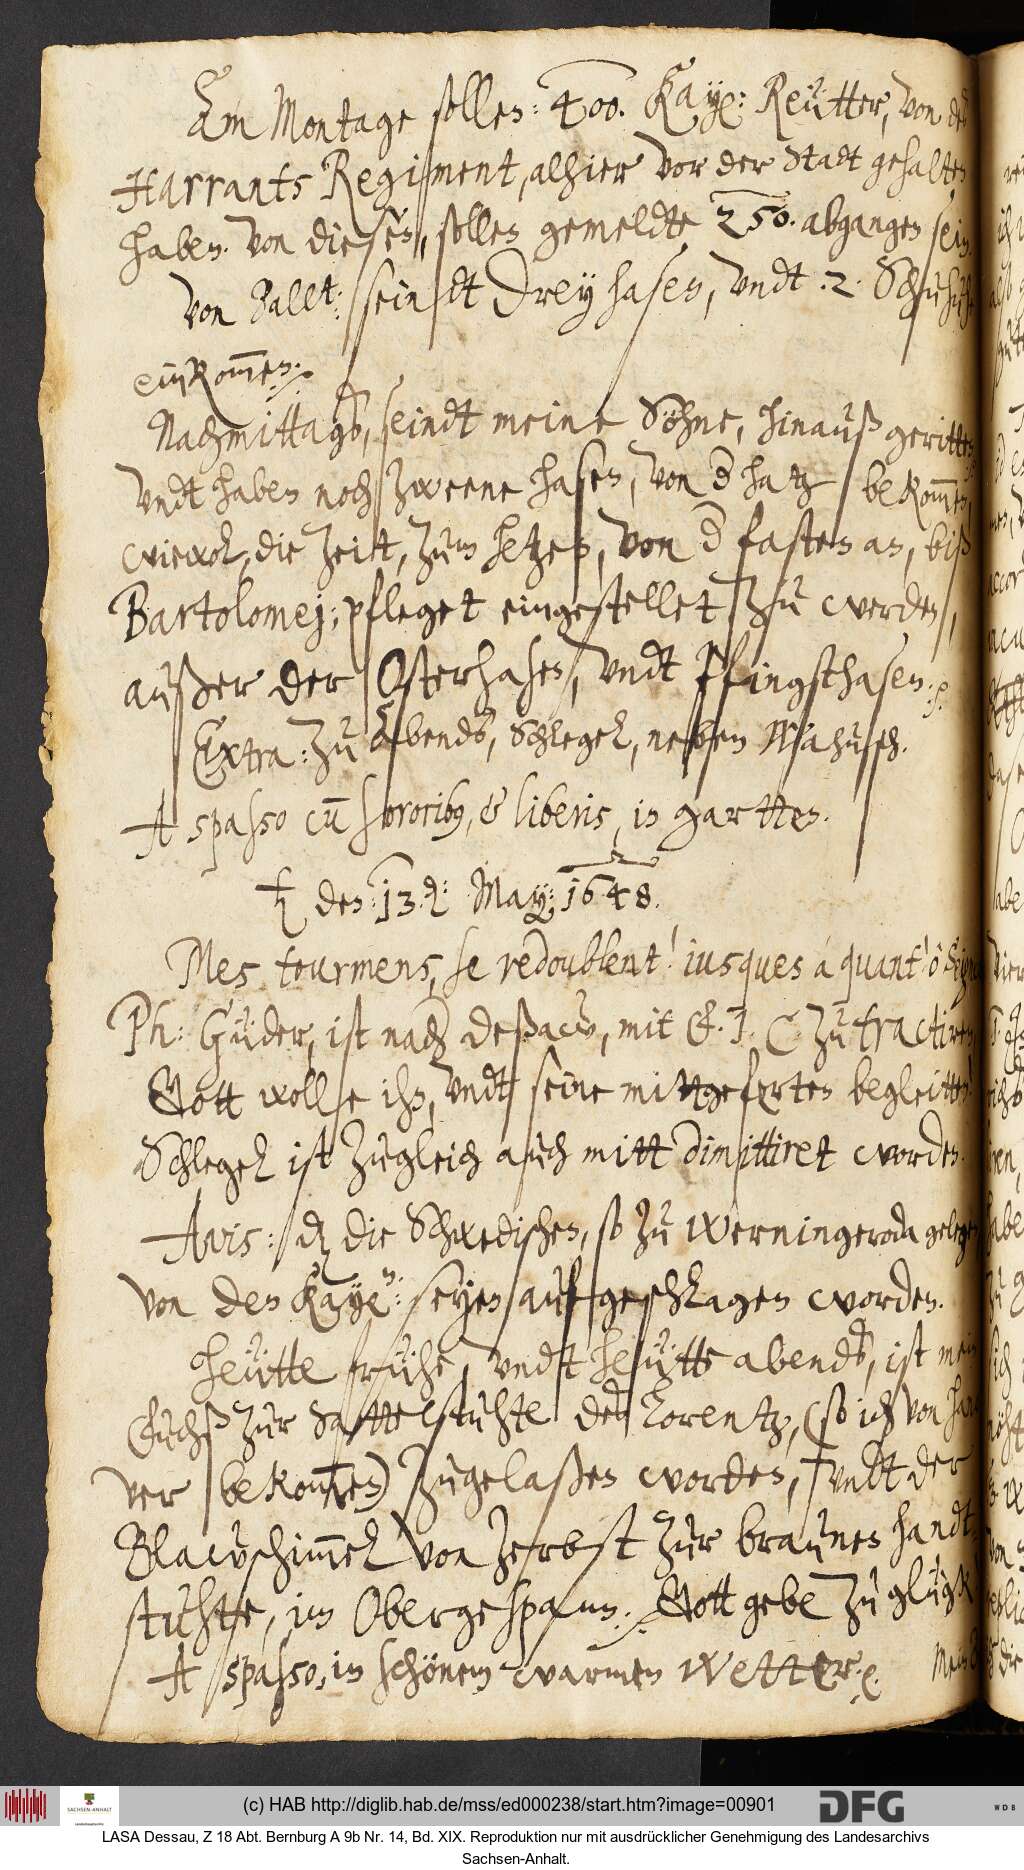 Am Montage sollen: 400. Kayß: Reütter, von des
Harrants Regiment, alhier vor der Stadt gehalten
haben. Von diesen, sollen gemeldte 250. abgangen sein.
Von Ballst: seindt drey hasen, vndt .2. Schuhühn
einkommen.
Nachmittags, seindt meine Söhne, hinauß geritten,
vndt haben noch zweene hasen, von der hatz bekommen,
wiewol, die Zeitt, zum hetzen, von der fasten an, biß
Bartolomej; pfleget eingestellet zu werden,
außer der Osterhasen, vndt Pfingsthasen.
Extra: zu Abends, Schlegel, neben Mahusch.
A spasso cum sororibus, & liberis, in gartten.
♄ den: 13. d: May: 1648.
Mes tourmens, se redoublent! jusques a quant! ô Seigneur
Ph: Güder, ist nach Deßaw, mit E. J. C zu tractiren,
Gott wolle ihn, vndt seine mittgeferten begleitten!
Schlegel ist zugleich auch mitt dimittiret worden.
Avis: daß die Schwedischen, so zu Werningeroda gelegen
von den Kayßn: seyen aufgeschlagen worden.
Heütte frühe, vndt heütte abends, ist mein
Fuchß zur Sattelstuhte der Lorentz, (so ich von Han
ver bekommen) zugelaßen worden, vndt der
Blawschimmel von Zerbst zur braunen handt
stuhte, im Obergespann. Gott gebe zu glügk
A spasso, in schönem warmen Wetter.
Mein
(c) HAB http://diglib.hab.de/mss/ed000238/start.htm?image=00901
DFG
WDB
SACHSEN-ANHALT
LASA Dessau, Z 18 Abt. Bernburg A 9b Nr. 14, Bd. XIX. Reproduktion nur mit ausdrücklicher Genehmigung des Landesarchivs
Sachsen-Anhalt.